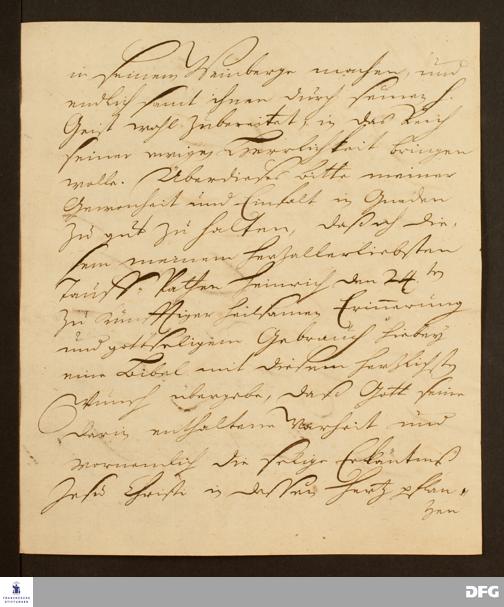 in seinem Weinberge machen, und
endlich samt ihnen durch seinen H.
Geist wohl zubereitet, in das Reich
seiner ewigen Herrlichkeit bringen
wolle. Überdieses bitte meiner
Gewonheit und Einfalt in Gnaden
zu gut zu halten, daß ich die-
sem meinem herzallerliebsten
Tauff-Pathen Heinrich den 24ten
zu künfftiger heilsamen Erinnerung
und gottseligem Gebrauch hiebey
eine Bibel mit diesem hertzlichsten
Wunsch übergebe, daß Gott seine
darin enthaltene Warheit und
vornemlich die selige Erkäntniß
Jesu Christi in dessen Hertz pflan-
zen
FRANCKESCHE
STIFTUNGEN
DFG